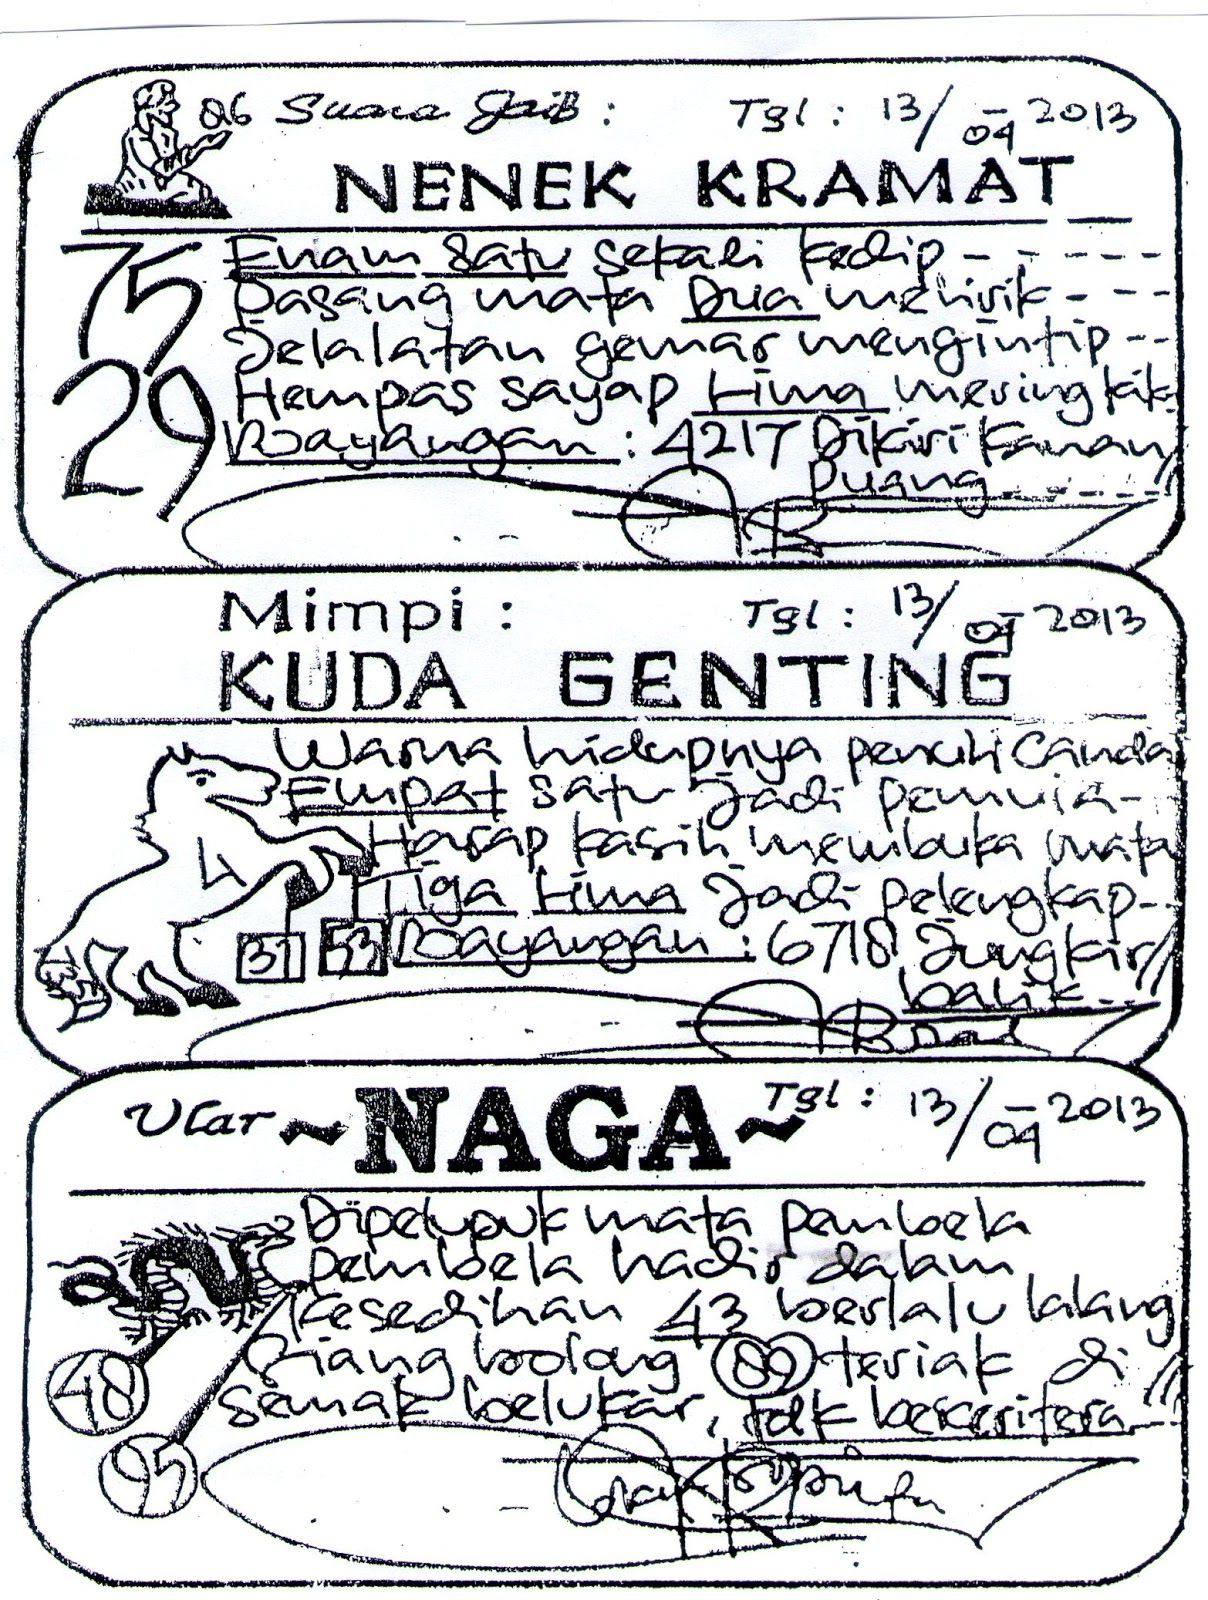 Suara Gaib : Tgl : 13/04-2013
NENEK KRAMAT
75 Enam Satu sekali kedip - - - - -
Pasang mata Dua melirik - - - -
Jelalatan gemar mengintip - -
29 Hempas sayap Lima meringkik
Bayangan : 4217 Dikiri Kanan //
Duang - - - - -
Mimpi : Tgl : 13/04-2013
KUDA GENTING
Warna hidupnya penuh Canda
Empat Satu Jadi pemula - -
Harap kasih membuka mata
Tiga Lima Jadi pelengkap - -
37 53 Bayangan : 6718, Jungkir //
balik - - -
Ular ~NAGA~ Tgl : 13/04-2013
Dipelupuk mata pembela
pembela hadir dalam
Kesedihan 43 berlalu lalang
Riang bolong 89 teriak di
48 Semak belukar, tdk berceritera - - //
95